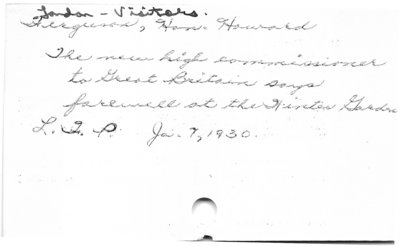 London - Visitors.
Ferguson, Hon. Howard
The new high commissioner
to Great Britain says
farewell at the Winter Garden
L. F. P. Ja. 7, 1930.